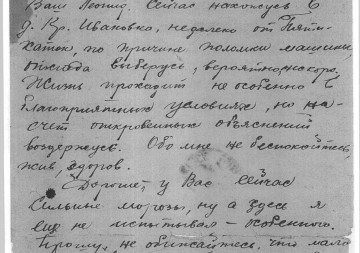 Ваш Леонид. Сейчас нахожусь в
д. Кр. Ивановка, недалеко от
по причине поломки машины,
отсюда выберусь, вероятно, скоро.
Жизнь проходит не особенно в
благоприятных условиях, но на-
счет откровенных объяснений
воздержусь. Обо мне не беспокойтесь,
жив, здоров.
Дорогие, у Вас сейчас
сильные морозы, ну а здесь я
еще не испытывал – особенного.
Прошу, не обижайтесь, что мало